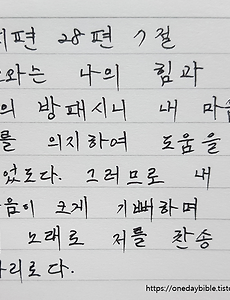 시편 28편 7절
호와는 나의 힘과
의 방패시니 내 마음
를 의지하여 도움을
었도다. 그러므로 내
음이 크게 기뻐하며
노래로 저를 찬송
하리로다.
https://onedaybible.tisto